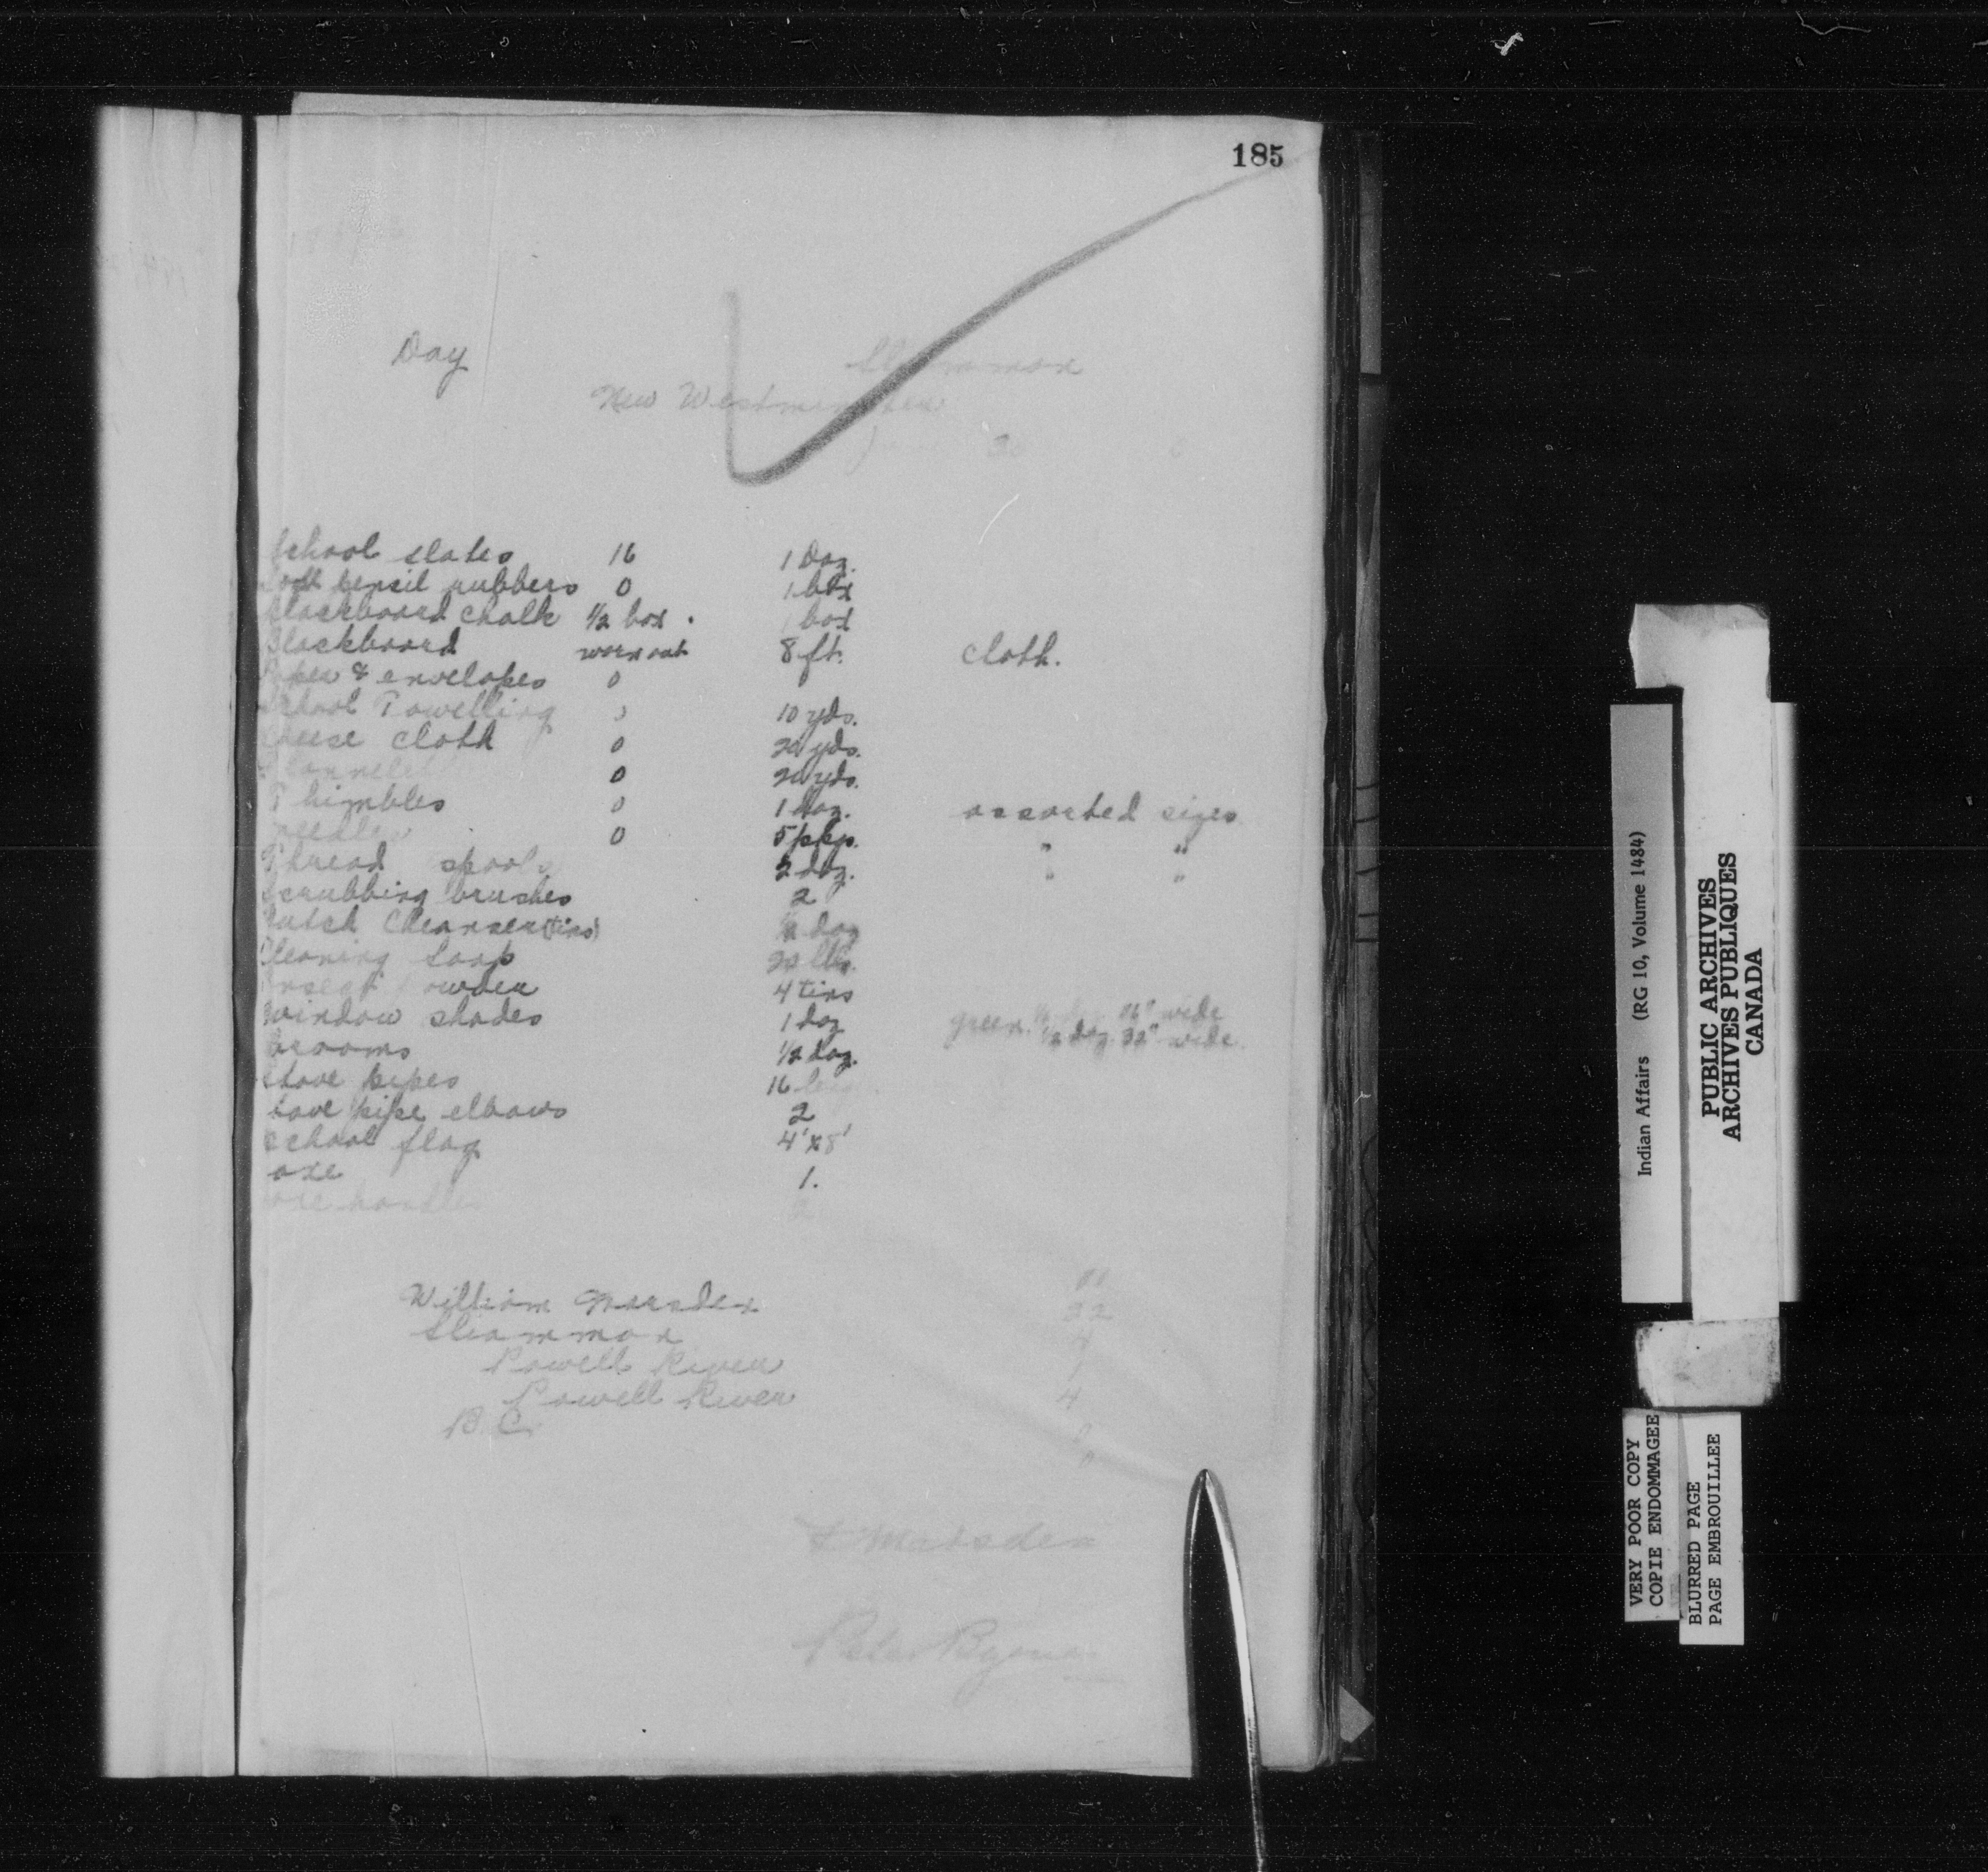 185
Day Sliammon
New Westminster
June 30
School slates 16 1 Doz.
Soft pencil rubbers 0 1 box
Blackboard chalk 1/2 box 1 box
Blackboard worn out 8 ft. cloth.
Paper & envelopes 0
School Towelling 0 10 yds.
Cheese cloth 0 20 yds.
Flannelet 0 20 yds.
Thimbles 0 1 doz. assorted sizes
Needles 0 5 pkgs. " "
Thread spools 2 doz. " "
Scrubbing brushes 2
Dutch Cleanser (tins) 1/2 doz
Cleaning Soap 20 lbs.
Insect Powder 4 tins
Window shades 1 doz green 1/2 doz 36" wide
1/2 doz. 32" wide.
Brooms 1/2 doz.
Stove pipes 16
Stove pipe elbows 2
School flag 4' x 8'
axe 1.
axe handles 2
William Marsden
Sliammon 22
Powell River
Powell River 4
B.C.
Marsden
Peter Byrne
Indian Affairs (RG 10, Volume 1484)
PUBLIC ARCHIVES
ARCHIVES PUBLIQUES
CANADA
VERY POOR COPY
COPIE ENDOMMAGEE
BLURRED PAGE
PAGE EMBROUILLEE